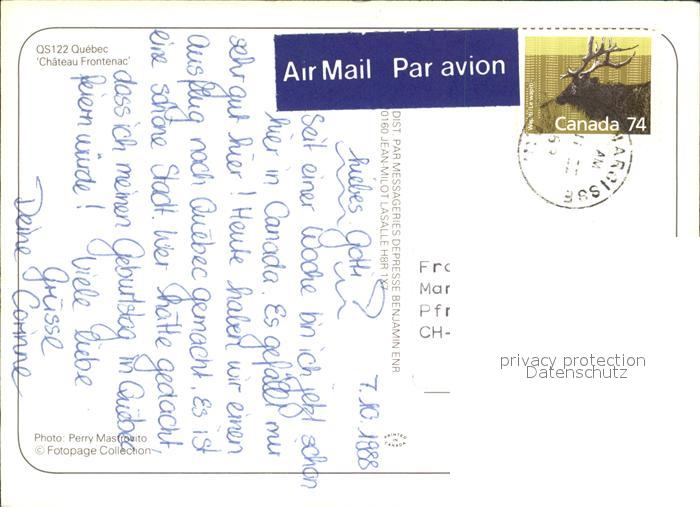 QS122 Québec
'Château Frontenac'
Air Mail Par avion
Canada 74
7.10.1988
Liebes Gotti
Seit einer Woche bin ich jetzt schon
hier in Canada. Es gefällt mir
sehr gut hier! Heute haben wir einen
Ausflug nach Québec gemacht. Es ist
eine schöne Stadt. Wer hätte gedacht,
dass ich meinen Geburtstag in Québec
feiern würde! Viele liebe
Grüsse
Deine Corinne
DIST. PAR MESSAGERIES DEPRESSE BENJAMIN ENR
0160 JEAN-MILOT LASALLE H8R 1X7
Frc
Mar
Pfr
CH-
privacy protection
Datenschutz
PRINTED
IN
CANADA
Photo: Perry Mastrovito
© Fotopage Collection